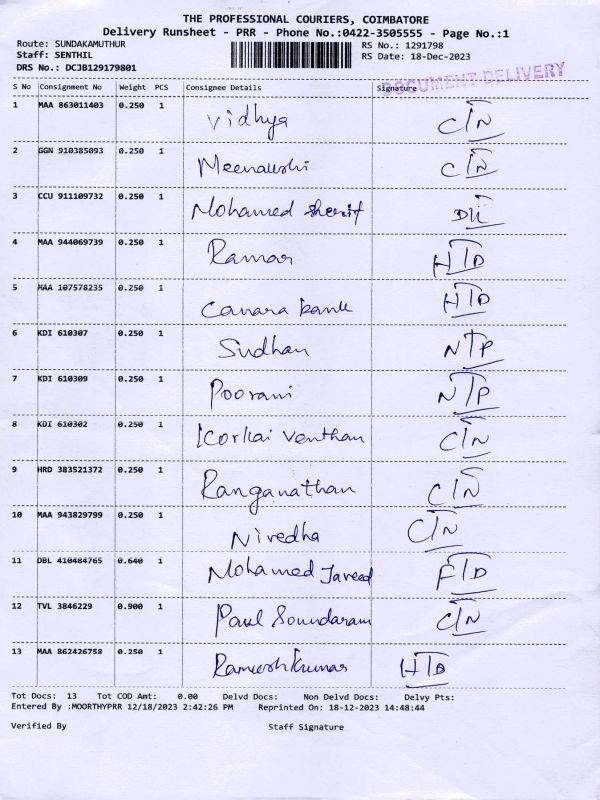 THE PROFESSIONAL COURIERS, COIMBATORE
Delivery Runsheet - PRR - Phone No.:0422-3505555 - Page No.:1
Route: SUNDAKAMUTHUR RS No.: 1291798
Staff: SENTHIL RS Date: 18-Dec-2023
DRS No.: DCJB129179801
DOCUMENT DELIVERY
S No Consignment No Weight PCS Consignee Details Signature
1 MAA 863011403 0.250 1 Vidhya CIN
2 GGN 910385093 0.250 1 Meenakshi CIN
3 CCU 911109732 0.250 1 Mohamed Sherif
4 MAA 944069739 0.250 1 Raman HTD
5 MAA 107578235 0.250 1 Canara bank HTD
6 KDI 610307 0.250 1 Sudhan NTP
7 KDI 610309 0.250 1 Poorani NTP
8 KDI 610302 0.250 1 Korkai Venthan CIN
9 HRD 383521372 0.250 1 Ranganathan CIN
10 MAA 943829799 0.250 1 Nivedha CIN
11 DBL 410484765 0.640 1 Mohamed Javeed FTD
12 TVL 3846229 0.900 1 Paul Soundaram CIN
13 MAA 862426758 0.250 1 Rameshkumar HTD
Tot Docs: 13 Tot COD Amt: 0.00 Delvd Docs: Non Delvd Docs: Delvy Pts:
Entered By :MOORTHYPRR 12/18/2023 2:42:26 PM Reprinted On: 18-12-2023 14:48:44
Verified By Staff Signature